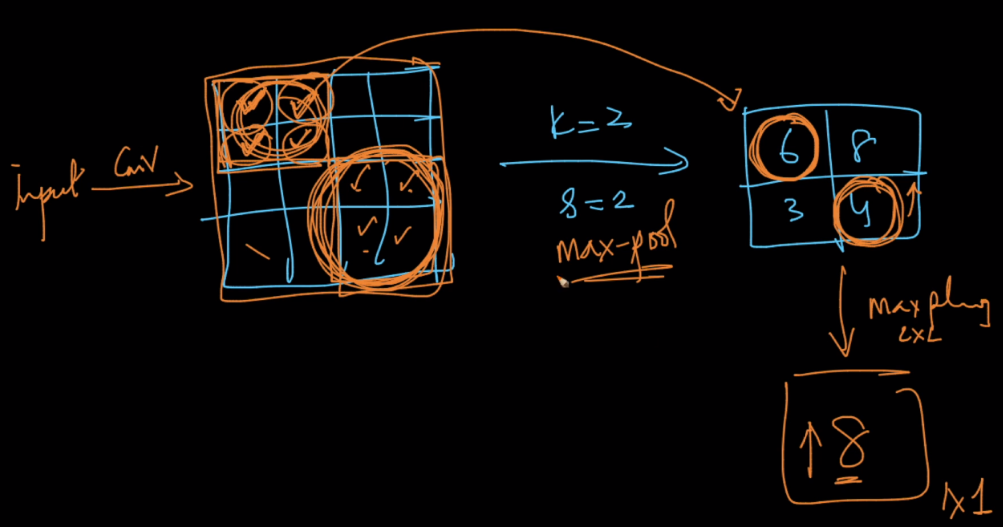 Input Conv
K=2
S=2
Max-pool
6 8
3 4
Max plung
2x2
↑ 8
1x1